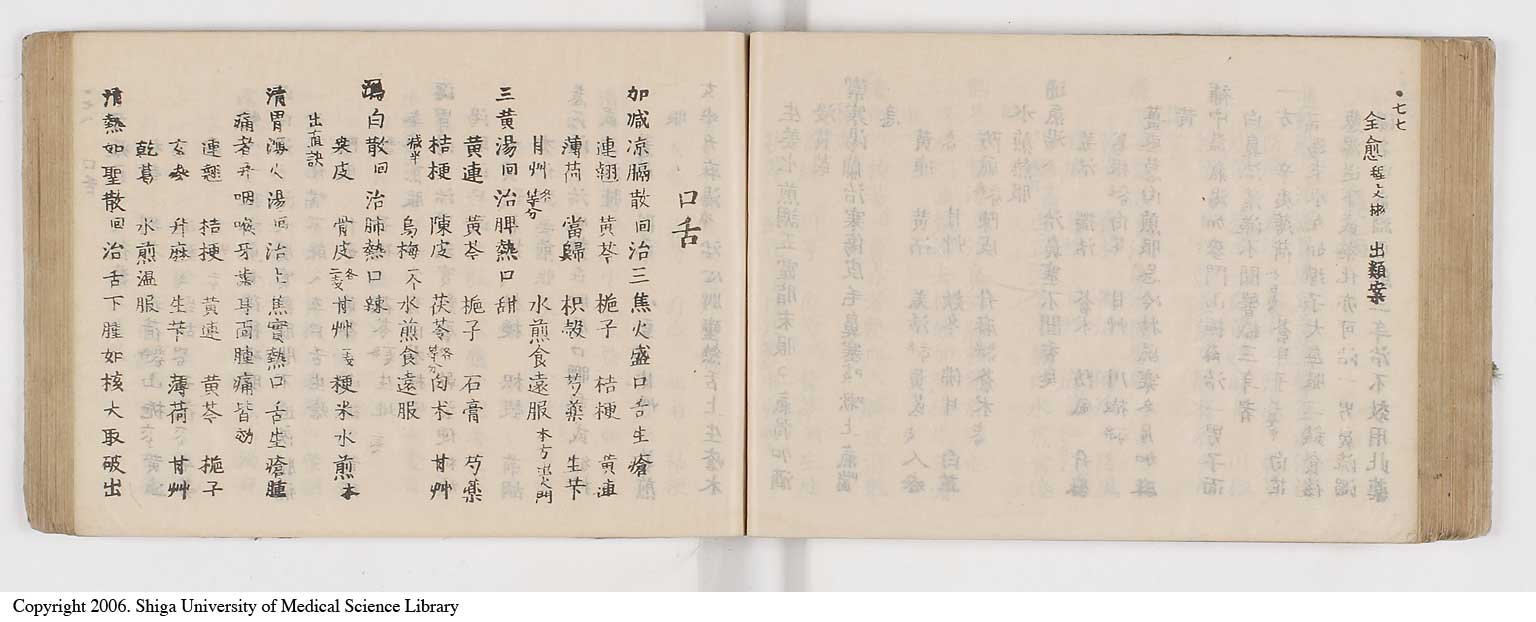 七七
全愈 程文彬 出類案
口舌
加减凉膈散 回 治三焦火盛口舌生瘡
連翹 黄芩 梔子 桔梗 黄連
薄荷 當歸 枳殻 芍薬 生芐
甘艸 各等分 水煎食遠服 本方
三黄湯 回 治脾熱口甜
黄連 黄芩 梔子 石膏 芍薬
桔梗 陳皮 茯苓 各等分 白朮 甘艸
减半 烏梅 一个 水煎食遠服
瀉白散 回 治肺熱口辣
桒皮 骨皮 各二戔 甘艸 一戔 粳米 水煎 本
出直訣
清胃瀉火湯 回 治上焦實熱口舌生瘡腫
痛者并咽喉牙葉耳面腫痛皆効
連翹 桔梗 黄連 黄芩 梔子
玄参 升麻 生芐 薄荷 甘艸
乾葛 水煎温服
清熱如聖散 回 治舌下腫如核大取破出
Copyright 2006. Shiga University of Medical Science Library